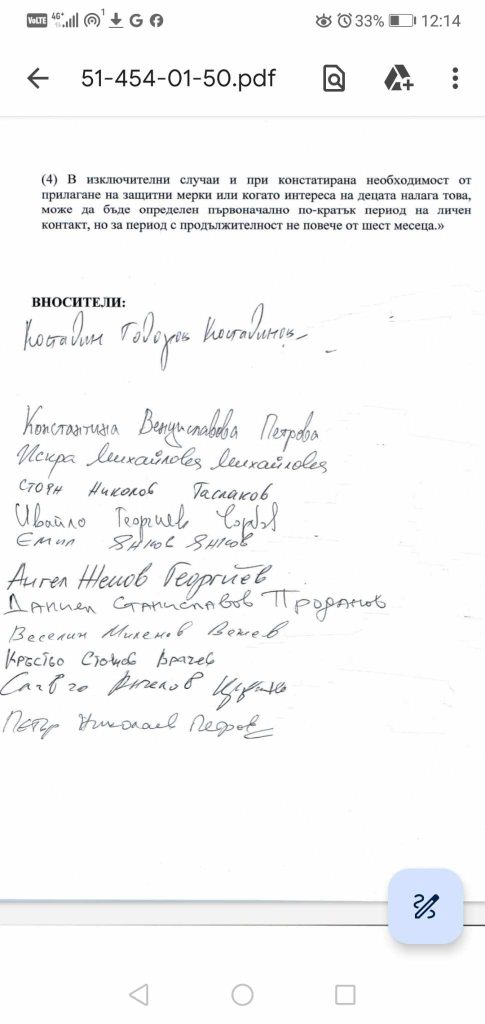 VoLTE 4G+ 1 G 33% 12:14
51-454-01-50.pdf
(4) В изключителни случаи и при констатирана необходимост от
прилагане на защитни мерки или когато интереса на децата налага това,
може да бъде определен първоначално по-кратък период на личен
контакт, но за период с продължителност не повече от шест месеца.»
ВНОСИТЕЛИ:
Костадин Тодоров Костадинов
Константина Венциславова Петрова
Искра Михайлова Михайлова
Стоян Николов Таслаков
Ивайло Георгиев Чорбов
Емил Янков Янков
Ангел Жеков Георгиев
Даниел Станиславов Проданов
Веселин Миленов Вешев
Кръстьо Стоянов Врачев
Славчо Ангелов
Петър Николаев Петров